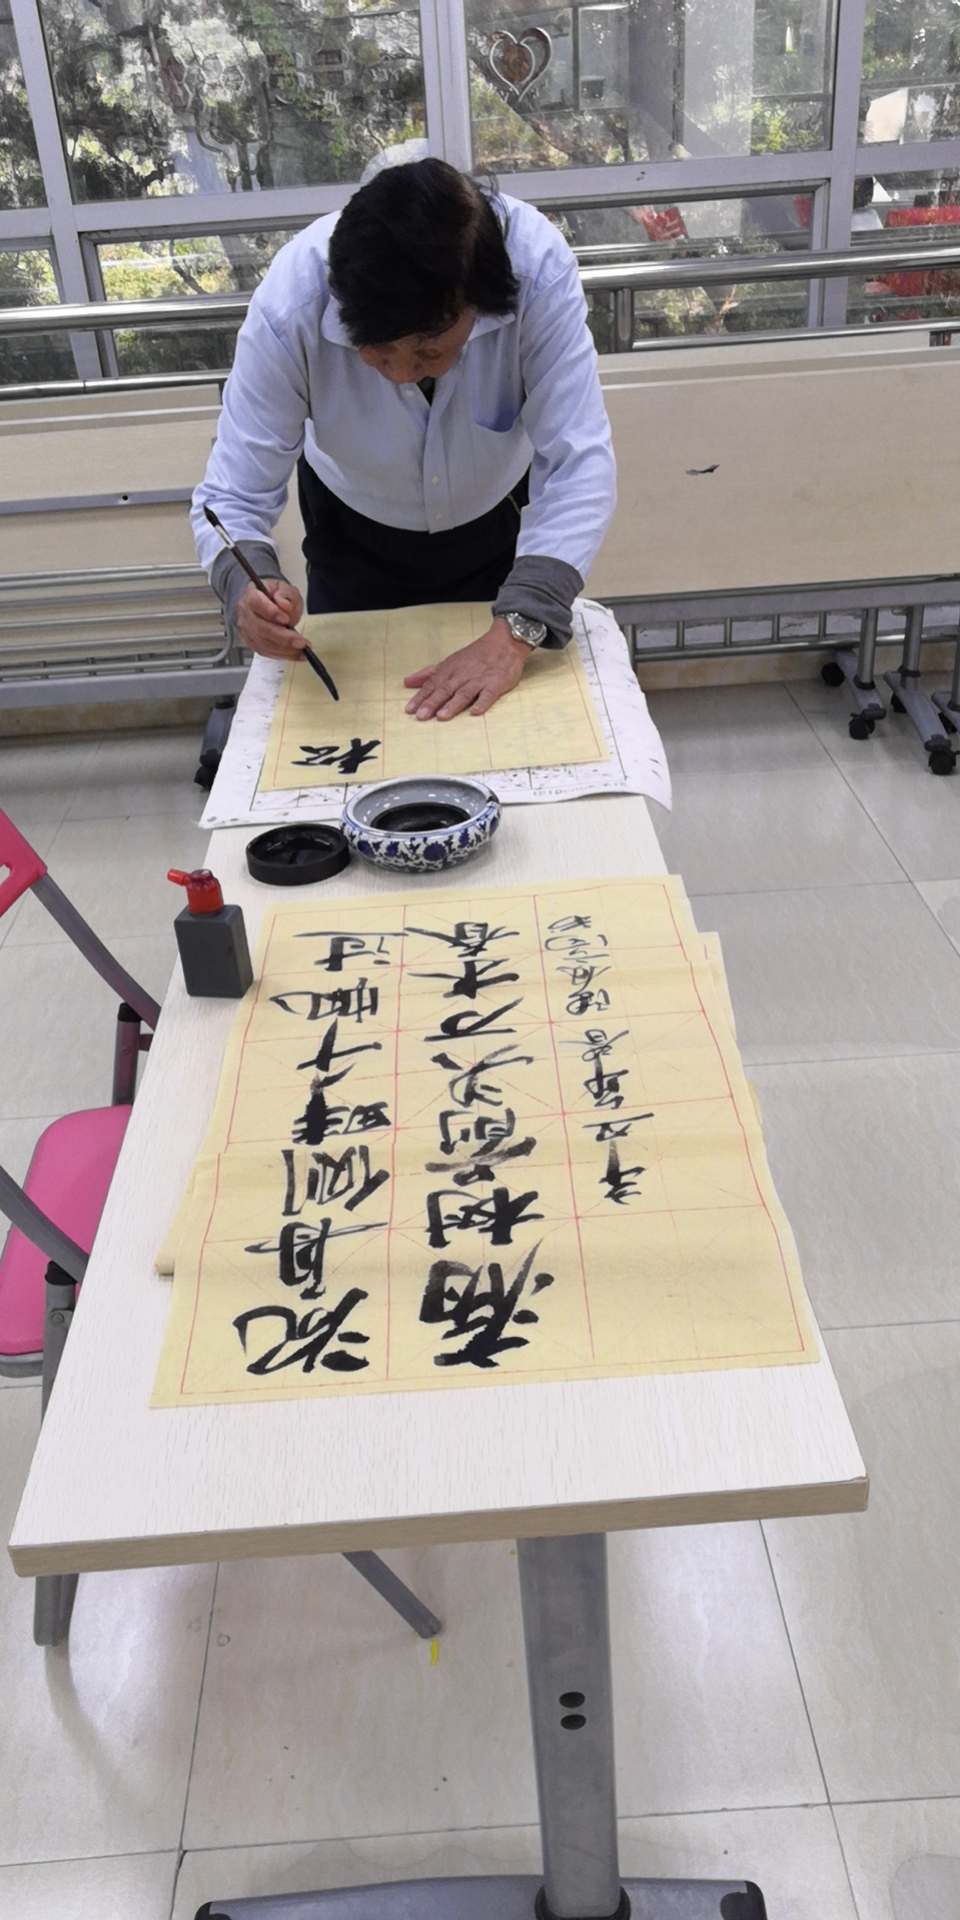 松
沉舟侧畔千帆过
病树前头万木春
辛丑